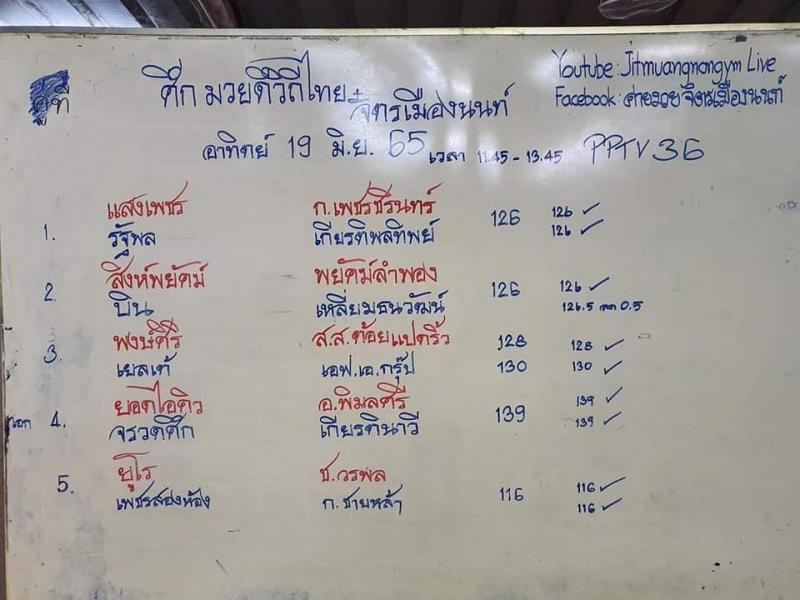 Youtube: Jitmuangnongym Live
ศึก มวยดีวิถีไทย + จิตรเมืองนนท์
Facebook: ค่ายมวยจิตรเมืองนนท์
คู่ที่
อาทิตย์ 19 มิ.ย. 65 เวลา 11.45 - 13.45 PPTV 36
แสงเพชร ก.เพชรชีรินทร์ 126 ✓
1. 126
รัฐพล เกียรติพลทิพย์ 126 ✓
สิงห์พยัคฆ์ พยัคฆ์ลำพอง 126 ✓
2. 126
บิน เหลี่ยมธนวัฒน์ 126.5 ลด 0.5
พงษ์ศิริ ส.ส.ต้อยแปดริ้ว 128 128 ✓
3.
เยลเต้ เอฟ.เอ.กรุ๊ป 130 130 ✓
ยอดไอคิว อ.พิมลศรี 139 ✓
เอก 4. 139
จรวดศึก เกียรตินาวี 139 ✓
ยูโร ช.วรพล 116 ✓
5. 116
เพชรสองห้อง ก.ชายหล้า 116 ✓